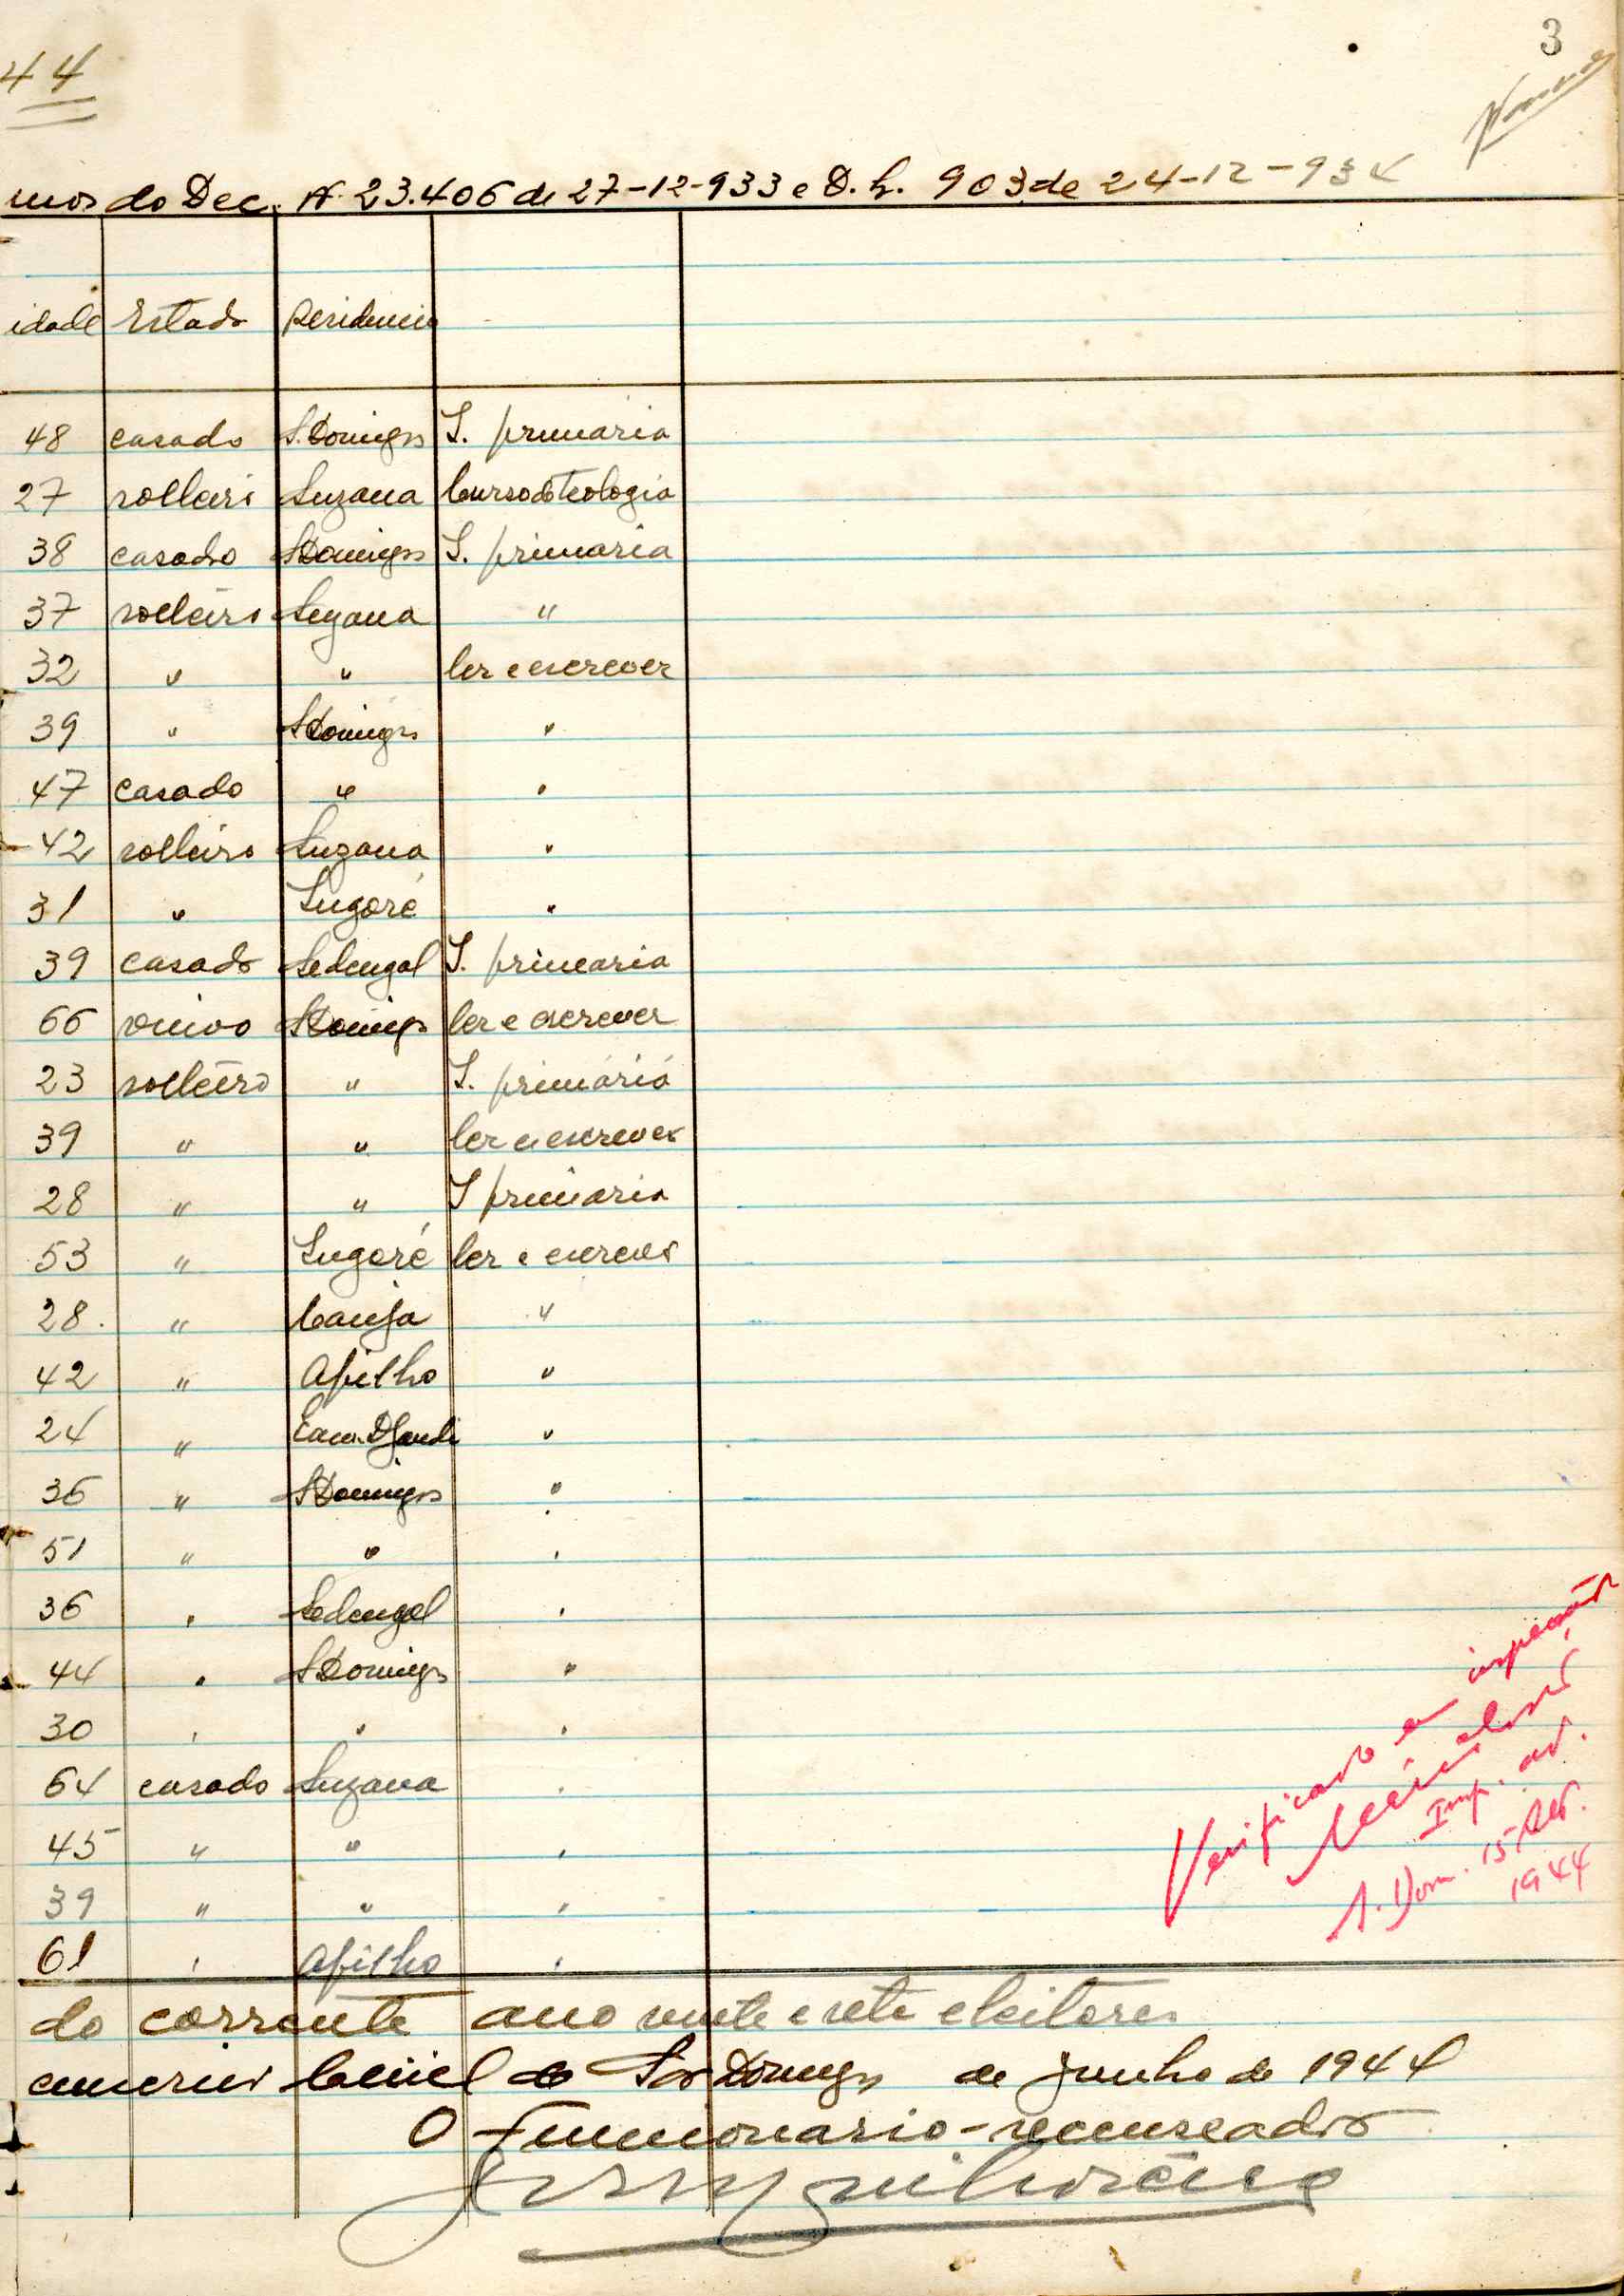 3
44
mos do Dec. Nº 23.406 de 27-12-933 e D. L. 903 de 24-12-934
idade Estado Residencia
48 casado S. Domingos I. primária
27 solteiro Suzana Curso de Teologia
38 casado S Domingos I. primaria
37 solteiro Suzana "
32 " " ler e escrever
39 " S Domingos "
47 casado " "
42 solteiro Suzana "
31 " Ingoré "
39 casado Sedengal I. primaria
66 viuvo S Domingos ler e escrever
23 solteiro " I. primária
39 " " ler e escrever
28 " " I primaria
53 " Ingoré ler e escrever
28. " Canja "
42 " Apilho "
24 " "
36 " S Domingos "
51 " " "
36 " Sedengal "
44 " S Domingos "
30 " " "
64 casado Suzana "
45 " " "
39 " " "
61 " Apilho "
do corrente ano vinte e sete eleitores
de São Domingos de junho de 1944
O Funcionario-recenseador
Verificado em inspecção
Insp. ad.
S. Dom. 15
1944